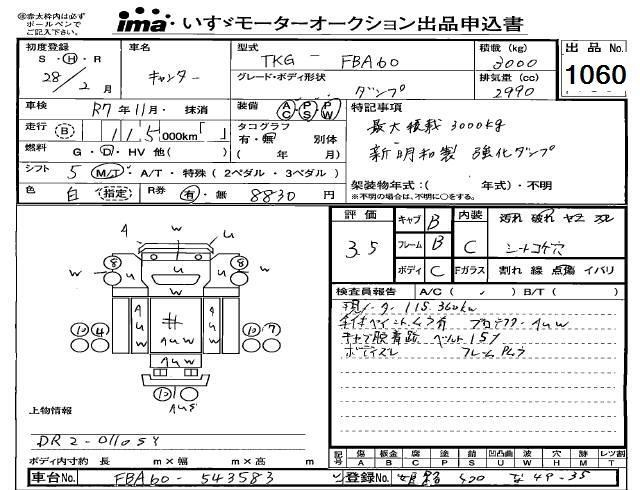 ㊟赤太枠内は必ず
ボールペンで
ご記入下さい。
ima いすゞモーターオークション出品申込書
初度登録
S・H・R
28年 2月
車名
キャンター
型式
TKG - FBA60
グレード・ボディ形状
ダンプ
積載 (kg)
3000
排気量 (cc)
2990
出品 No.
1060
車検
R7年11月・抹消
装備
AC PS PW
特記事項
最大積載3000kg
新明和製 強化ダンプ
走行 B 115,000km「 」
タコグラフ
有・無 別体
( 年 月)
燃料 G・D・HV 他( )
シフト 5 M/T・A/T・特殊 ( 2ペダル・3ペダル )
架装物年式:( 年式)・不明
※不明の場合は、不明に○をする。
色 白 指定
R券 有・無 8830円
評価
3.5
キャブ B
フレーム B
ボディ C
内装 C
Fガラス
汚れ 破れ ヤニ スレ
シートコゲ穴
割れ 線 点傷 イバリ
検査員報告 A/C ( ) B/T ( )
現メーター 115,360km
A
w
u
w
u
8
8
w
w
u
w
A
u
w
A
u
w
井
Auw
Auw
10 4
10 7
10
AuS
上物情報
DR2-01105Y
ボディ内寸約 長 m×幅 m×高 m
車台No. FBA60-543583
記号
傷 A
板金 B
腐 C
塗 P
錆 S
凹凸曲 U
波 W
穴 H
跡 M
レツ割 T
登録No. 姫路 400 な 49-35